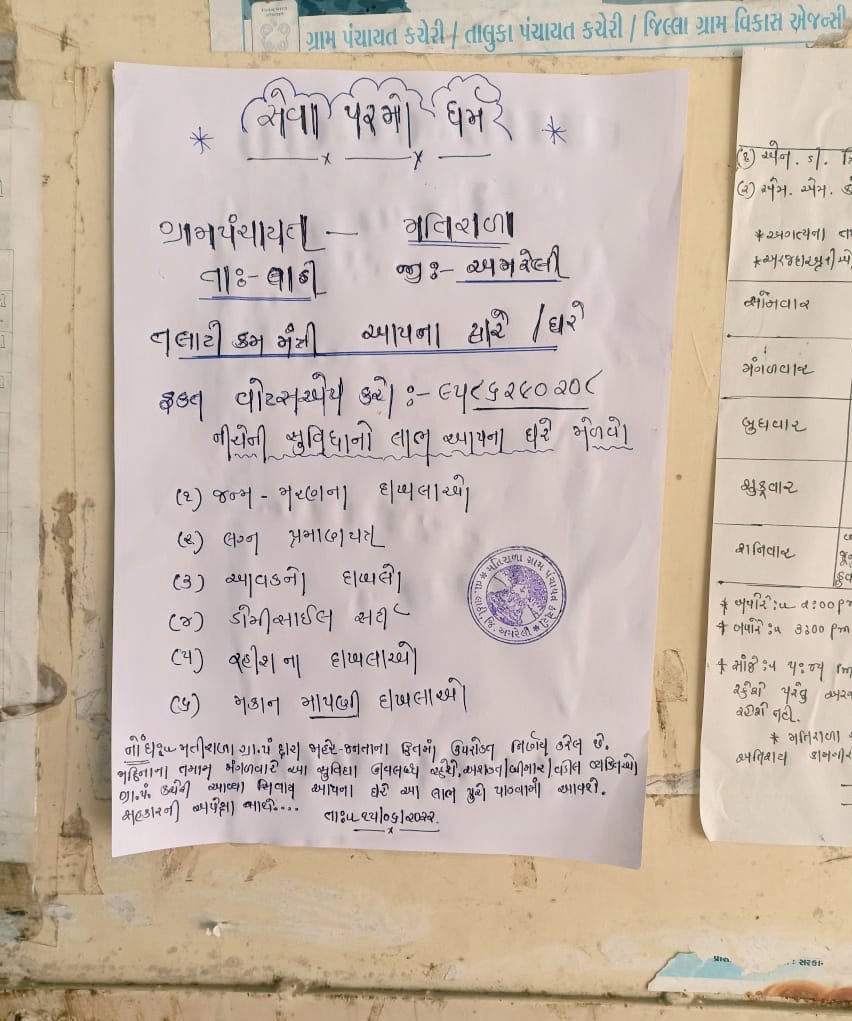 ગ્રામ પંચાયત કચેરી / તાલુકા પંચાયત કચેરી / જિલ્લા ગ્રામ વિકાસ એજન્સી
સેવા પરમો ધર્મ
ગ્રામપંચાયત - મતિરાળા
તાઃ- લાઠી જીઃ- અમરેલી
તલાટી કમ મંત્રી આપના દ્વારે / ઘરે
ફક્ત વોટસએપ કરો :- ૯૫૮૬૨૯૦૨૦૮
નીચેની સુવિધાનો લાભ આપના ઘરે મેળવો
(૧) જન્મ - મરણના દાખલાઓ
(૨) લગ્ન પ્રમાણપત્ર
(૩) આવકનો દાખલો
(૪) ડોમીસાઈલ સર્ટી
(૫) રહીશ ના દાખલાઓ
(૬) મકાન માપણી દાખલાઓ
મતિરાળા ગ્રામ પંચાયત કચેરી
જી. અમરેલી
નોંધઃ મતીરાળા ગ્રા.પં દ્વારા જાહેર-જનતાના હિતમાં ઉપરોક્ત નિર્ણય કરેલ છે.
મહિનાના તમામ મંગળવારે આ સુવિધા ઉપલબ્ધ રહેશે. અશક્ત/બીમાર/વડીલ વ્યક્તિઓ
ગ્રા.પં. કચેરી આવ્યા સિવાય આપના ઘરે આ લાભ પુરો પાડવામાં આવશે.
સહકારની અપેક્ષા સાથે....
તાઃ ૧૫/૦૬/૨૦૨૨
(૧) એન. ડી.
(૨) એમ. એમ.
* અગત્યના
સોમવાર
મંગળવાર
બુધવાર
શુક્રવાર
શનિવાર
* બપોરે ૨:૦૦ pm
* બપોરે ૩:૦૦ pm
* સાંજે
રહેશે નહી.
* મતિરાળા
અતિશય કામગીરી
: સરકા